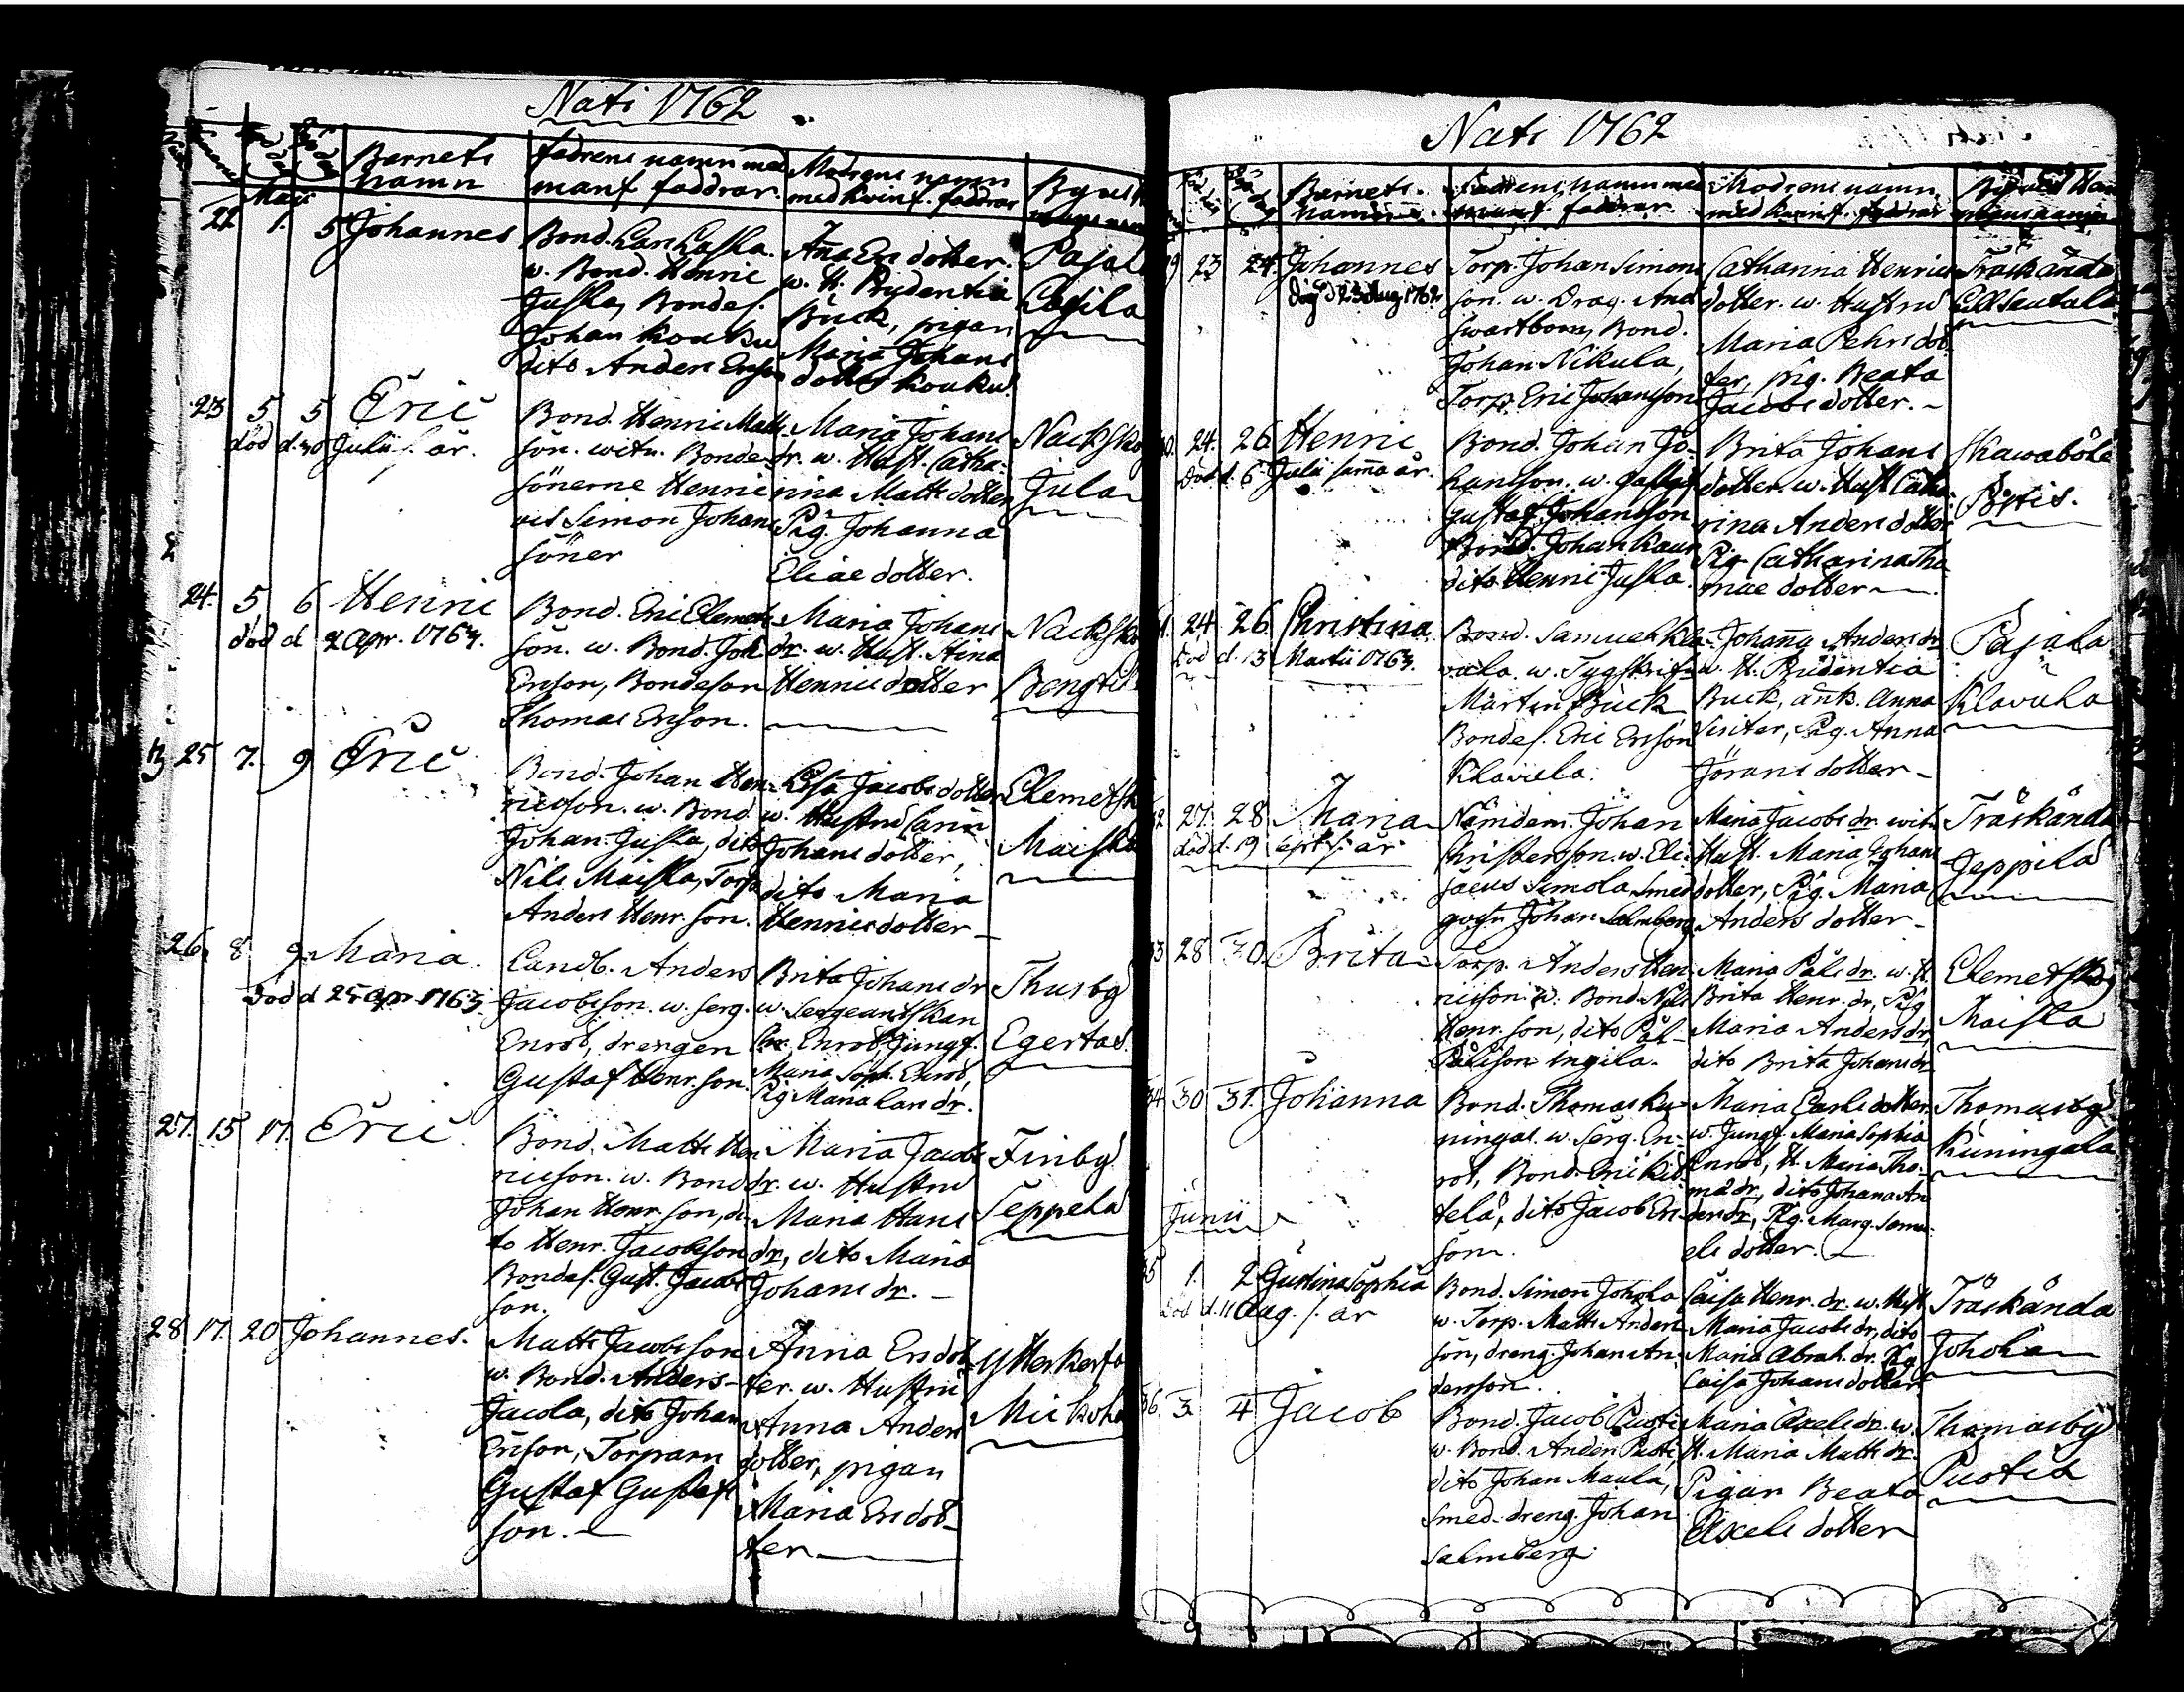 Nati 1762
Barnets
namn
fadrens namn med
manf. faddrar.
Modrens namn
med kvinf. faddrar
Maji
22. 1. 5 Johannes
Bond. Lars Lassla.
w. Bond. Henric
Jussla, Bondes.
Johan Kouku
dito Anders Ersson
Aña Ers dotter.
w. H. Prudentia
Bück, pigan
Maria Johans
dotter Kouku.
23 5 5 Eric
död d. 30 Julii s. år.
Bond. Henric Matts
son. witn. Bonde
sönerne Henric
Simon Johans
söner
Maria Johans
dr. w. Hust. Catha
rina Matts dotter
Pig. Johanna
Eliae dotter.
Jula
24. 5 6 Henric
död d 2 Apr. 1763.
Bond. Eric Clemets
son. w. Bond. Joh
Ersson, Bondeson
Thomas Ersson.
Maria Johans
dr. w. Hust. Anna
Henrics dotter
25 7. 9 Eric
Bond. Johan Hen
ricsson. w. Bond.
Johan Jussla, dito
Nils Maisla, Torp.
Anders Henr. son.
Lisa Jacobs dotter
w. Hustru Carin
Johans dotter,
dito Maria
Henrics dotter
Maisla
26. 8. 9. Maria.
död d 25 apr. 1763.
Landb. Anders
Jacobsson. w. Serg.
Enrot, drengen
Gustaf Henr. son.
Brita Johans dr
w. Sergeantskan
Chr. Enrot, Jungf.
Maria Soph. Enrot,
Pig. Maria Lars dr.
Thusby
Egertas.
27. 15 17. Eric
Bond. Matts Hen
ricsson. w. Bond
Johan Henr. son, di
to Henr. Jacobsson
Bondes. Gust. Jacobs
son.
Maria Jacobs
dr. w. Hustru
Maria Hans
dr, dito Maria
Johans dr.
Finby
Seppelä
28 17. 20 Johannes.
Matts Jacobsson
w. Bond. Anders
Jacola, dito Johan
Ersson, Torparn
Gustaf Gustafs
son.
Anna Ers dot
ter. w. Hustru
Anna Anders
dotter, pigan
Maria Ers dot
ter
Nati 1762
Barnets
namn
Fadrens namn med
manf. faddrar.
Modrens namn
med kvinf. faddrar
23 24. Johannes
dog d 23 Aug 1762
Torp. Johan Simons
son. w. Drag. And
Swartbom, Bond.
Johan Nikula,
Torp. Eric Johansson
Catharina Henrics
dotter. w. Hustru
Maria Pehrs dot
ter, pig. Beata
Jacobs dotter.
Träskända
24. 26 Henric
död d. 6 Julii samma år.
Bond. Johan Jo
hansson. w.
Gustaf Johansson
Bond. Johan Kaun
dito Henric Jussla.
Brita Johans
dotter. w. Hust. Catha
rina Anders dotter
Pig. Catharina Tho
mae dotter
Skawaböle
24. 26. Christina.
död d. 13 Martii 1763.
Bond. Samuel Kla
Mårten Bück
Bondes. Eric Ersson
Johanna Anders dr
w. H. Prudentia
Buck, änk. Anna
Pig. Anna
Jörans dotter
Pajala
27. 28 Maria
död d. 19 sept. s. år
Nämdem. Johan
Christersson. w. Eli
saeus Simola, Smed
Johan Salmberg
Maria Jacobs dr. witn.
Hust. Maria Johans
dotter, Pig. Maria
Anders dotter
Träskända
Jeppila
28 30. Brita
Torp. Anders Hen
ricsson. w. Bond. Nils
Henr. son, dito Pål
Pålsson Ingila.
Maria Påls dr. w. H.
Brita Henr. dr, Pig
Maria Anders dr,
dito Brita Johans dr
Maisla
34 30 31. Johanna
Bond. Thomas Ku
ningal. w. Serg. En
rot, Bond. Eric Kit
telä, dito Jacob Ers
son.
Maria Carls dotter
w. Jungf. Maria Sophia
Enrot, H. Maria Tho
mä dr, dito Johana An
ders dr, Pig. Marg. Samu
els dotter.
Thomasby
Kuningala
Junii
1. 2 Gustina Sophia
död d. 11 Aug. s. år
Bond. Simon Johola
w. Torp. Matts Anders
son, dreng. Johan An
dersson.
Caisa Henr. dr. w. Hust
Maria Jacobs dr, dito
Maria Abrah. dr. Pig
Caisa Johans dotter
Träskända
Johola
36 3 4 Jacob
Bond. Jacob Puoti
w. Bond. Anders Puoti,
dito Johan Maula,
Smed. dreng. Johan
Salmberg.
Maria Axels dr. w.
H. Maria Matts dr.
Pigan Beata
Axels dotter
Thomasby
Puotis